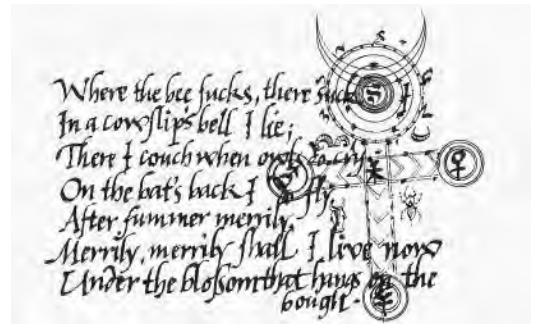 Where the bee ſucks, there ſuck
In a cowſlip's bell I lie;
There I couch when owls do cry.
On the bat's back I do fly
After ſummer merrily.
Merrily, merrily ſhall I live now
Under the bloſsom that hangs on the
bough.